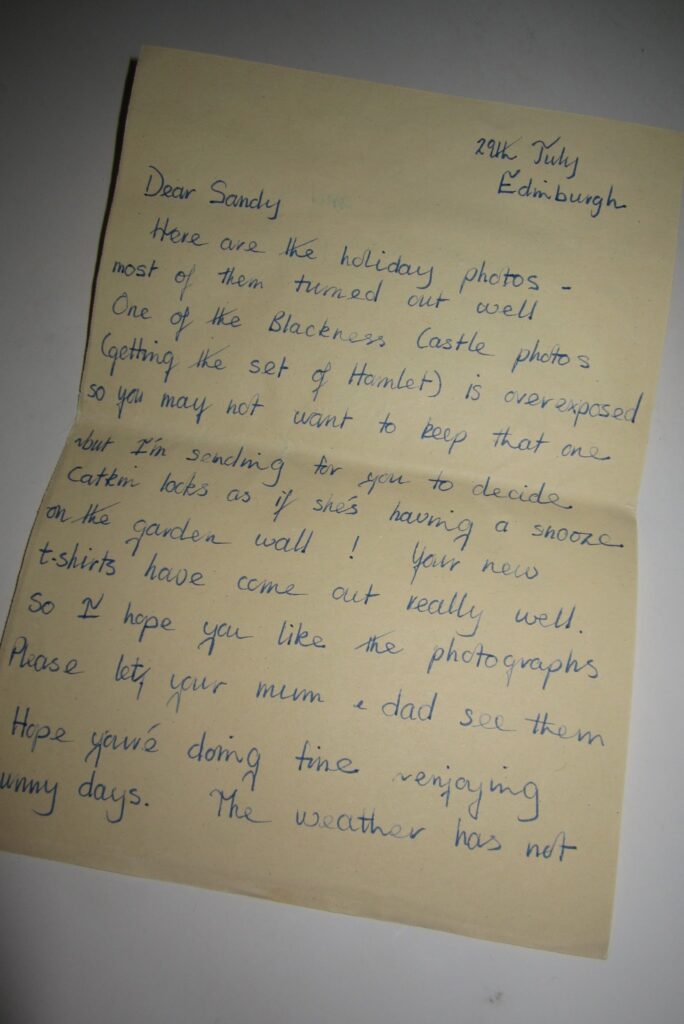 29th July
Edinburgh
Dear Sandy
Here are the holiday photos -
most of them turned out well
One of the Blackness Castle photos
(getting the set of Hamlet) is overexposed
so you may not want to keep that one
~but I'm sending for you to decide
Catkin looks as if she's having a snooze
on the garden wall! Your new
t-shirts have come out really well.
So I hope you like the photographs
Please let your mum & dad see them
Hope you're doing fine ~enjoying
unny days. The weather has not